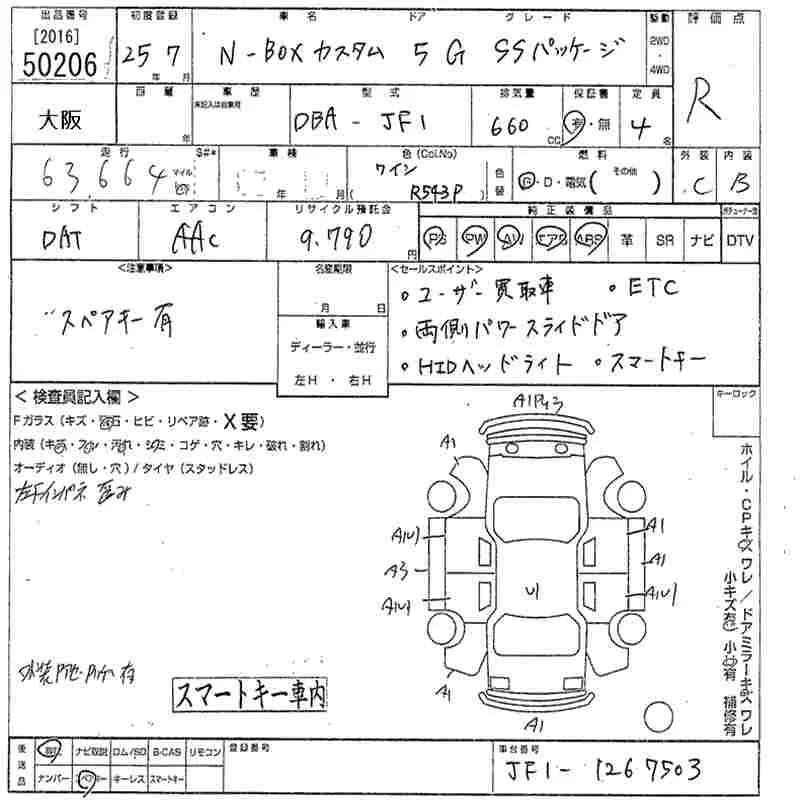 出品番号 初度登録 車名 ドア グレード 駆動 評価点
[2016] 50206 25 7 年 月 N-BOX カスタム 5 G SSパッケージ 2WD・4WD R
車歴 型式 排気量 保証書 定員
大阪 年 未記入は自家用 DBA-JF1 660 CC 有・無 4 名
走行 S#* 車検 色(Col.No) 燃料 外装 内装
63,664 マイル 年 月 ワイン (R543P) 色替 G・D・電気( その他 ) C B
シフト エアコン リサイクル預託金 純正装備品
DAT AAC 9,790 円 PS PW AW エアB ABS 革 SR ナビ DTV
<注意事項> 名変期限 <セールスポイント>
スペアキー有 月 日 ・ユーザー買取車 ・ETC
輸入車 ・両側パワースライドドア
ディーラー・並行 ・HIDヘッドライト ・スマートキー
左H・右H
<検査員記入欄> キーロック
Fガラス(キズ・飛石・ヒビ・リペア跡・X要)
内装(キズ・スレ・汚れ・シミ・コゲ・穴・キレ・破れ・割れ)
オーディオ(無し・穴)/タイヤ(スタッドレス)
A1
A1
A1
A1U1
A3
A1
A1U1
A1U1
U1
A1
A1
ホイル・CPキズ ワレ/ドアミラーキズ ワレ
小キズ有 小凹有 補修有
スマートキー車内
後送品 ナビ取説 ロム/SD B-CAS リモコン 登録番号 車台番号
ナンバー スペアキー キーレス スマートキー JF1-1267503